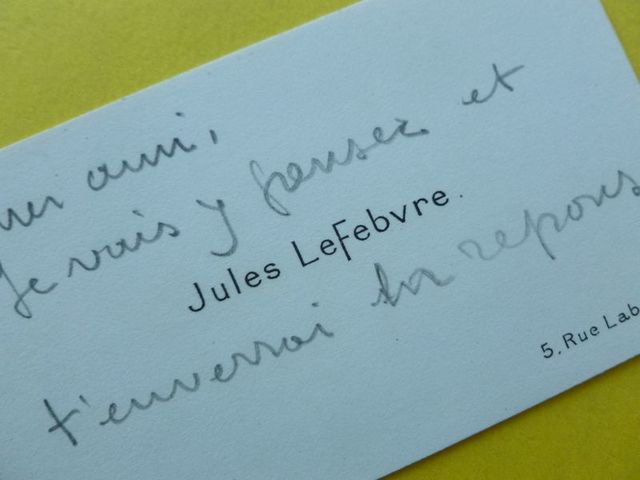 her ami,
Je vais y penser et
Jules LeFebvre.
t'enverrai ta repons
5, Rue Lab